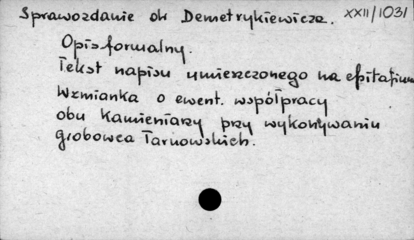 Sprawozdanie dr Demetrykiewicza. XXII/1031
Opis formalny.
Tekst napisu umieszczonego na epitafium
Wzmianka o ewent. współpracy
obu Kamieniarzy przy wykonywaniu
grobowca Tarnowskich.